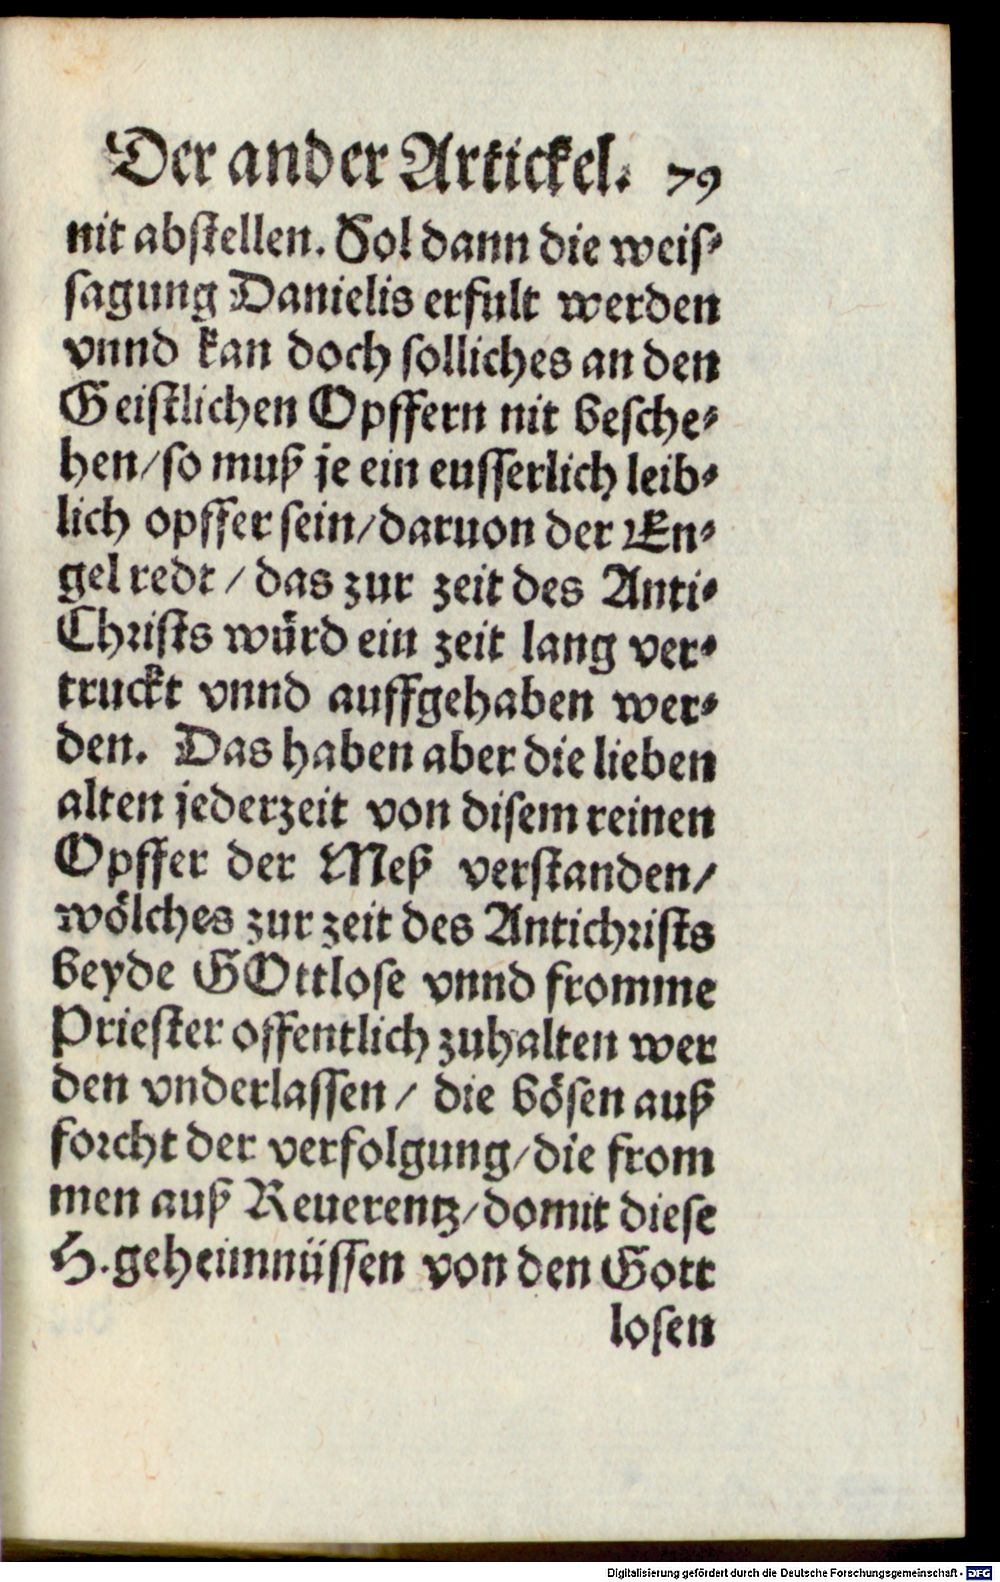 Der ander Artickel. 79
nit abstellen. Sol dann die weis⸗
sagung Danielis erfult werden
vnnd kan doch solliches an den
Geistlichen Opffern nit besche⸗
hen/so muß je ein eusserlich leib⸗
lich opffer sein/daruon der En⸗
gel redt / das zur zeit des Anti⸗
Christs würd ein zeit lang ver⸗
truckt vnnd auffgehaben wer⸗
den. Das haben aber die lieben
alten jederzeit von disem reinen
Opffer der Meß verstanden/
wölches zur zeit des Antichrists
beyde GOttlose vnnd fromme
Priester offentlich zuhalten wer
den vnderlassen / die bösen auß
forcht der verfolgung/die from
men auß Reuerentz/domit diese
H.geheimnüssen von den Gott
losen
Digitalisierung gefördert durch die Deutsche Forschungsgemeinschaft - DFG